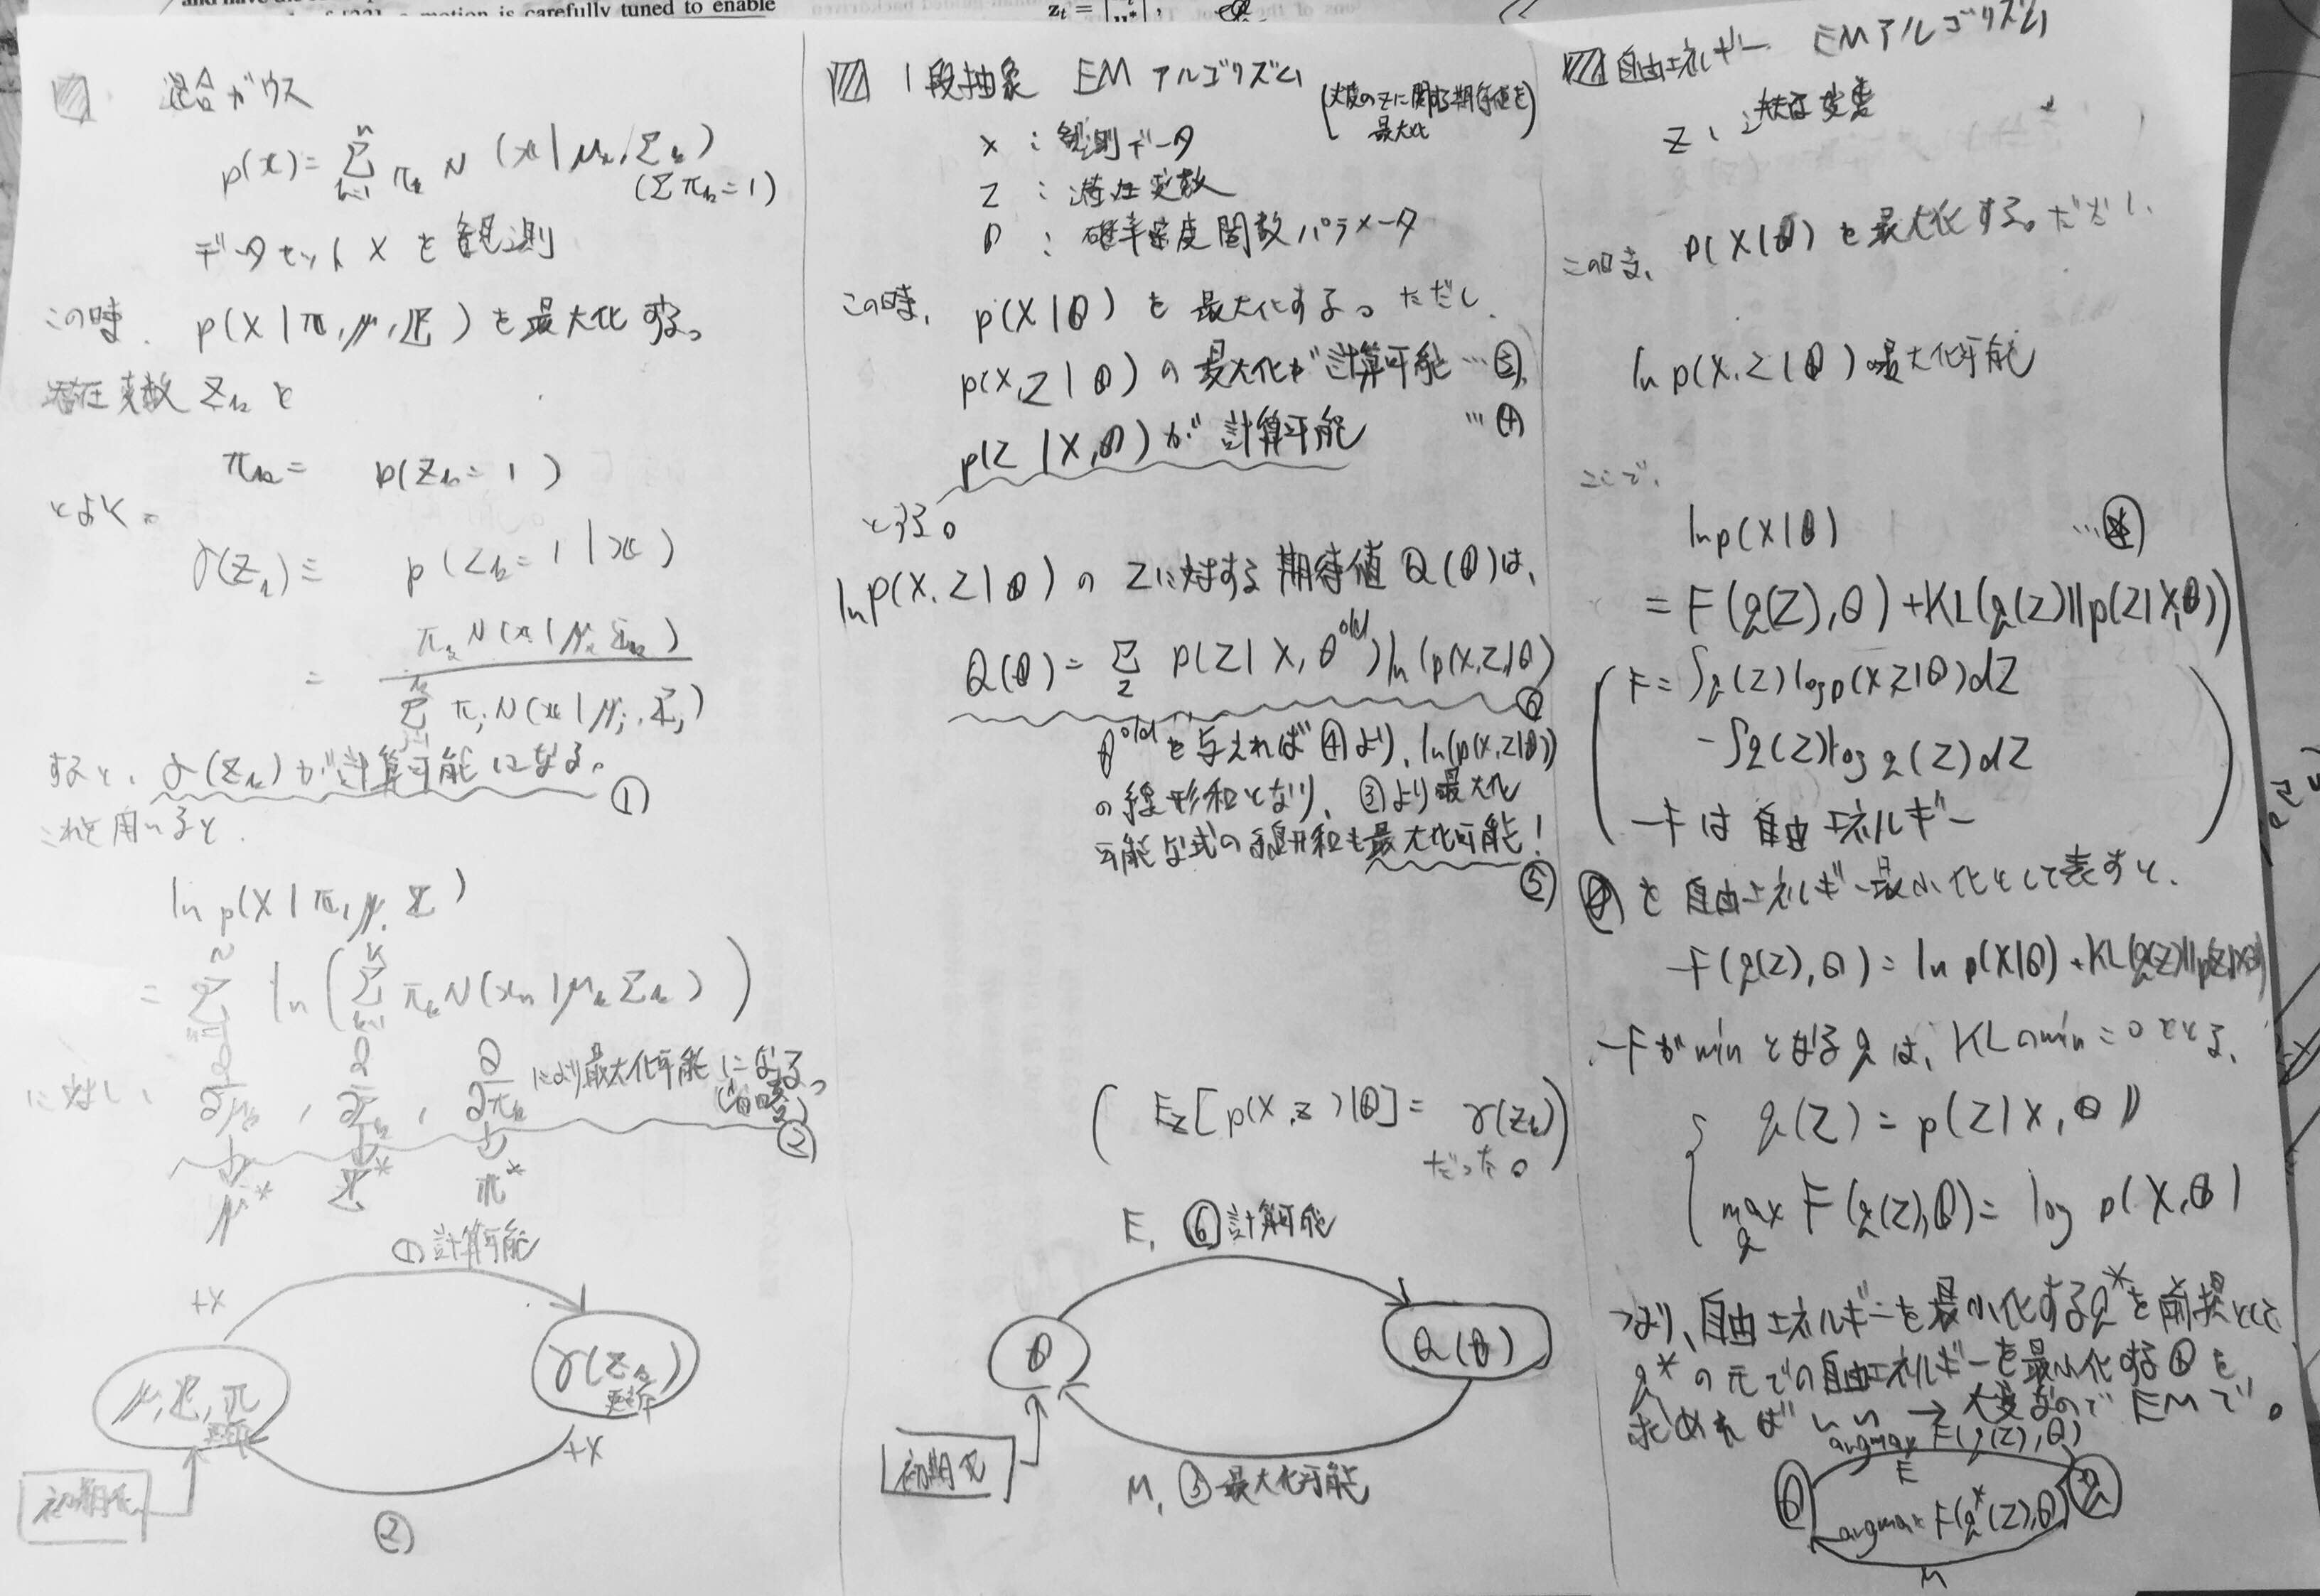 motion is carefully tuned to enable
混合ガウス
p(x) = Σ_{k=1}^{K} π_k N(x|μ_k, Σ_k)
(Σπ_k = 1)
データセット X を観測
この時、 p(X|π, μ, Σ) を最大化する。
潜在変数 z_k を
π_k = p(z_k = 1)
とおく。
γ(z_k) ≡ p(z_k = 1|x)
= π_k N(x|μ_k Σ_k) / Σ_{j=1}^{K} π_j N(x|μ_j, Σ_j)
すると、γ(z_k) が計算可能になる。 ①
これを用いると、
ln p(X|π, μ, Σ)
= Σ_{n=1}^{N} ln ( Σ_{k=1}^{K} π_k N(x_n|μ_k Σ_k) )
に対し、 ∂/∂μ_k , ∂/∂Σ_k , ∂/∂π_k により最大化可能になる。
(省略) ②
μ* Σ* π*
①計算可能
+X
μ, Σ, π
更新
γ(z_k)
更新
+X
初期化
②
1段抽象 EM アルゴリズム
(尤度のZに関する期待値を
最大化)
X : 観測データ
Z : 潜在変数
θ : 確率密度関数パラメータ
この時、 p(X|θ) を最大化する。ただし、
p(X,Z|θ) の最大化が計算可能 … ③
p(Z|X,θ) が計算可能 … ④
とする。
ln p(X,Z|θ) の Zに対する期待値 Q(θ)は、
Q(θ) = Σ_Z p(Z|X, θ^old) ln(p(X,Z|θ)) ⑥
θ^old を与えれば④より、ln(p(X,Z|θ))
の線形和となり、③より最大化
可能な式の線形和も最大化可能! ⑤
( E_Z[p(X,Z)|θ] = γ(z_k)
だった。)
E, ⑥計算可能
θ
Q(θ)
初期化
M, ⑤最大化可能
自由エネルギー EMアルゴリズム
Z : 潜在変数
この時、 p(X|θ) を最大化する。ただし、
ln p(X,Z|θ) 最大化可能
ここで、
ln p(X|θ) …
= F(q(Z),θ) + KL(q(Z)||p(Z|X,θ))
F = ∫q(Z) log p(X,Z|θ)dZ
-∫q(Z) log q(Z)dZ
-F は 自由エネルギー
を 自由エネルギー最小化として表すと、
-F(q(Z),θ) = ln p(X|θ) + KL(q(Z)||p(Z|X,θ))
-Fがminとなるqは、KLのmin = 0をとる、
q(Z) = p(Z|X, θ)
max_q F(q(Z),θ) = log p(X,θ)
つまり、自由エネルギーを最小化するq*を前提として
q*の元での自由エネルギーを最小化するθを
求めればいい → 大変なので EMで。
argmax F(q(Z),θ)
E
θ
q
argmax F(q*(Z),θ)
M